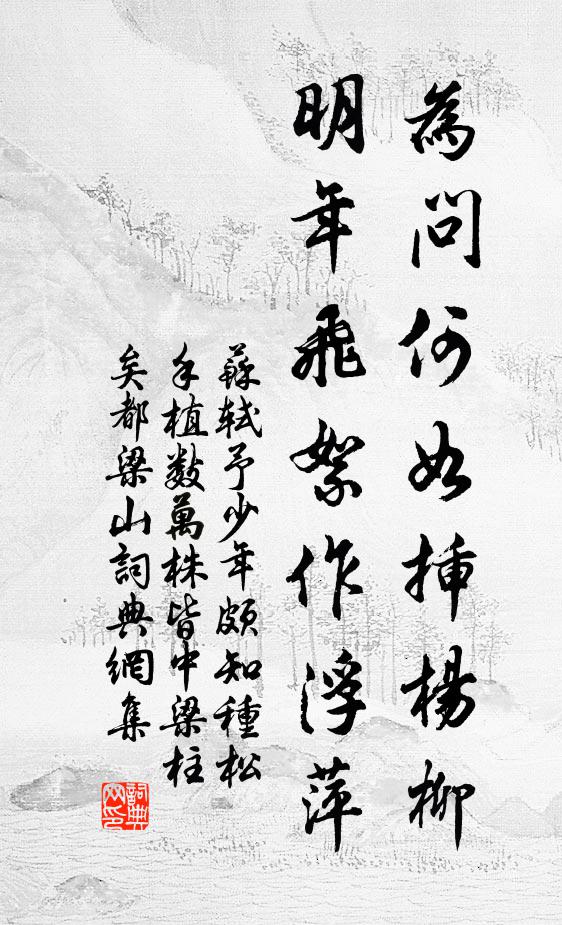 為問何如插楊柳
明年飛絮作浮萍
蘇軾予少年頗知種松
手植數萬株皆中梁柱
矣都梁山詞典網集
詞典
网印